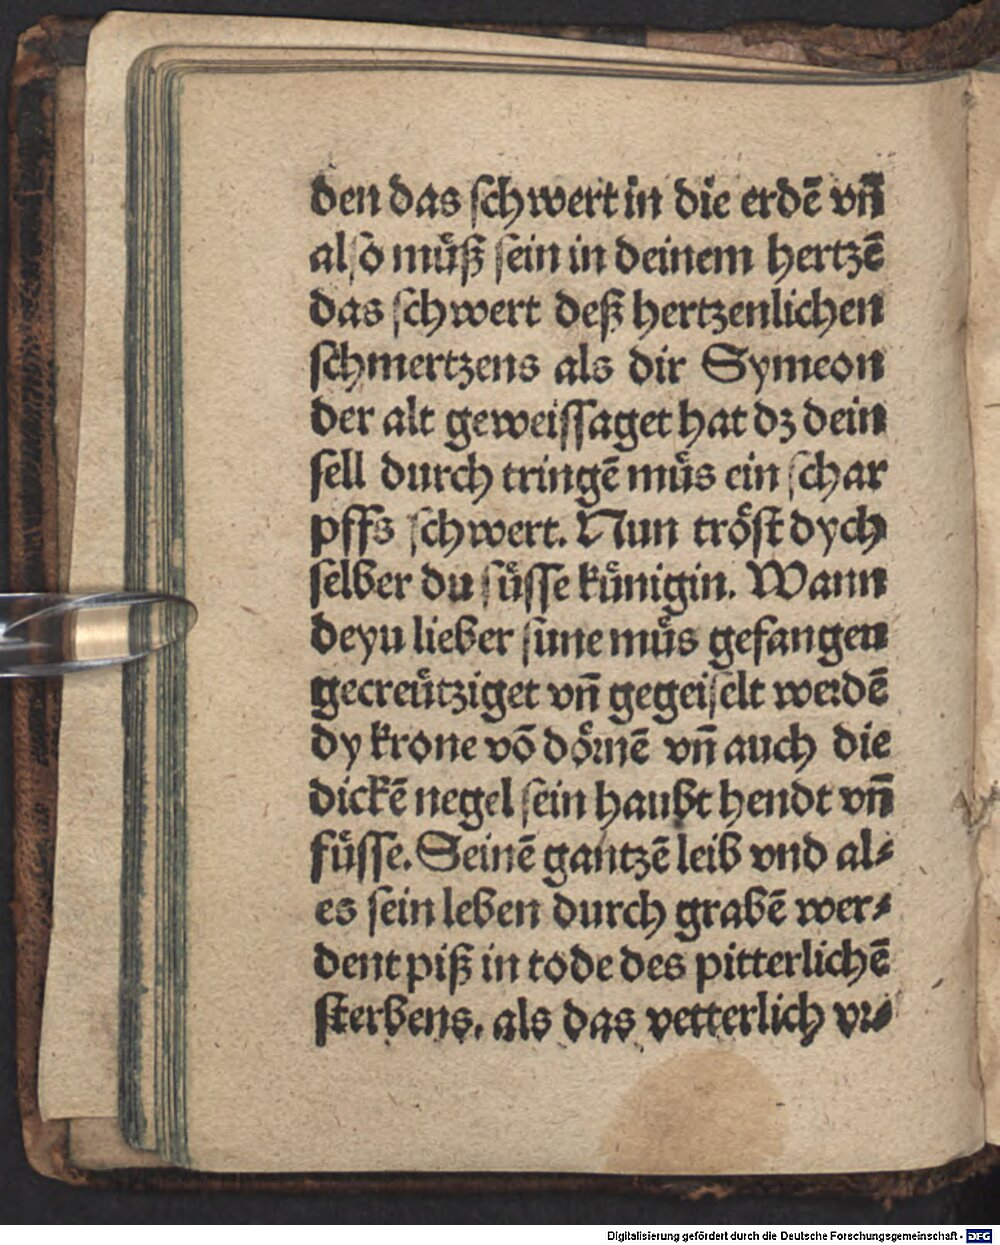 den das ſchwert in die erdē vn̄
alſo muͤß ſein in deinem hertzē
das ſchwert deß hertzenlichen
ſchmertzens als dir Symeon
der alt geweiſſaget hat dꝫ dein
ſell durch tringē muͤs ein ſchar
pffs ſchwert. Nun troͤſt dych
ſelber du ſuͤſſe kuͤnigin. Wann
deyu lieber ſune muͤs gefangen
gecreuͤtziget vn̄ gegeiſelt werdē
dy krone vō doͤrnē vn̄ auch die
dickē negel ſein haubt hendt vn̄
fuͤſſe. Seinē gantzē leib vnd al⸗
es ſein leben durch grabē wer⸗
dent piß in tode des pitterlichē
ſterbens. als das vetterlich vr⸗
Digitalisierung gefördert durch die Deutsche Forschungsgemeinschaft - DFG